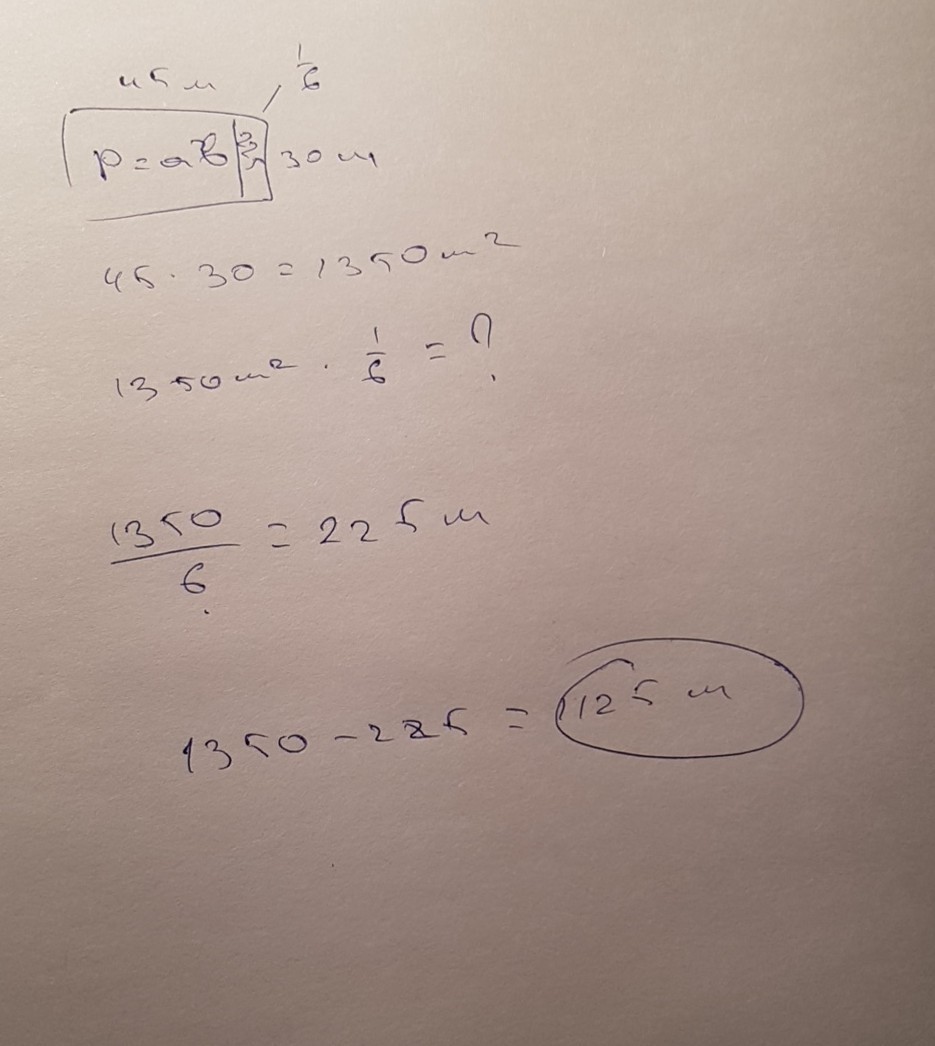 45 m
1/6
P = a b 30 m
45 · 30 = 1350 m²
1350 m² · 1/6 = ?
1350/6 = 225 m
1350 - 225 = 1125 m